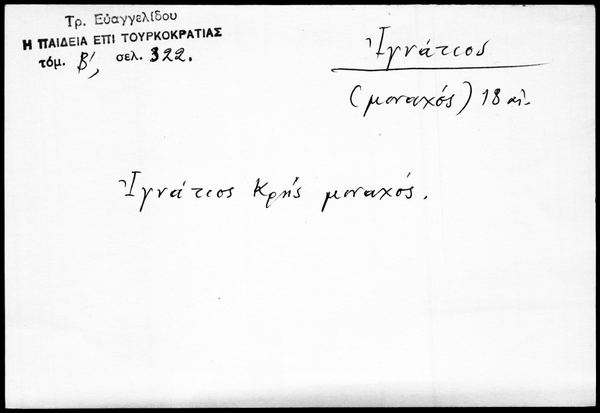 Τρ. Εὐαγγελίδου
Η ΠΑΙΔΕΙΑ ΕΠΙ ΤΟΥΡΚΟΚΡΑΤΙΑΣ
τόμ. Β', σελ. 322.
Ἰγνάτιος
(μοναχός) 18 αἰ.
Ἰγνάτιος Κρής μοναχός.